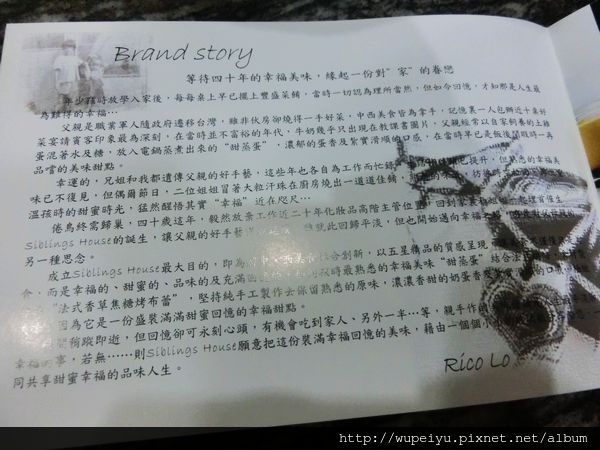 Brand story
等待四十年的幸福美味，緣起一份對"家"的眷戀
年少孩時放學入家後，每每桌上早已擺上豐盛菜餚，當時一切認為理所當然，但如今回憶，才知那是人生最
為難得的幸福…
父親是職業軍人隨政府遷移台灣，雖非伙房卻燒得一手好菜，中西美食皆為拿手，記憶裏一人包辦近十桌好
菜宴請賓客印象最為深刻，在當時並不富裕的年代，牛奶幾乎只出現在教課書圖片，父親經常以自家飼養的土雞
蛋混著水及糖，放入電鍋蒸煮出來的"甜蒸蛋"，濃郁的蛋香及紮實滑順的口感，在當時早已是飯後閒暇時一再
品嚐的美味甜點。
幸運的，兄姐和我都遺傳父親的好手藝，這些年也各自為工作而忙碌，已提升，但熟悉的幸福美
味已不復見，但偶爾節日，二位姐姐冒著大粒汗珠在廚房燒出一道道佳餚
溫孩時的甜蜜時光，猛然醒悟其實"幸福"近在咫尺…
倦鳥終需歸巢，四十歲這年，毅然放棄工作近二十年化妝品高階主管位置，回到
Siblings House的誕生，讓父親的好手藝 就此回歸平淡，但也開始邁向幸福
另一種思念。
成立Siblings House最大目的，即為 中西美食 分創新，以五星精品的質感呈現
食，而是幸福的、甜蜜的、品味的及充滿 時最熟悉的幸福美味"甜蒸蛋"結合法
"法式香草焦糖烤布蕾"，堅持純手工製作去保留熟悉的原味，濃濃香甜的奶蛋香
因為它是一份盛裝滿滿甜蜜回憶的幸福甜點。
稍蹤即逝，但回憶卻可永刻心頭，有機會吃到家人、另外一半…等，親手作的
幸福的事，若無……則Siblings House願意把這份裝滿幸福回憶的美味，藉由一個個小
同共享甜蜜幸福的品味人生。
Rico Lo
http://wupeiyu.pixnet.net/album